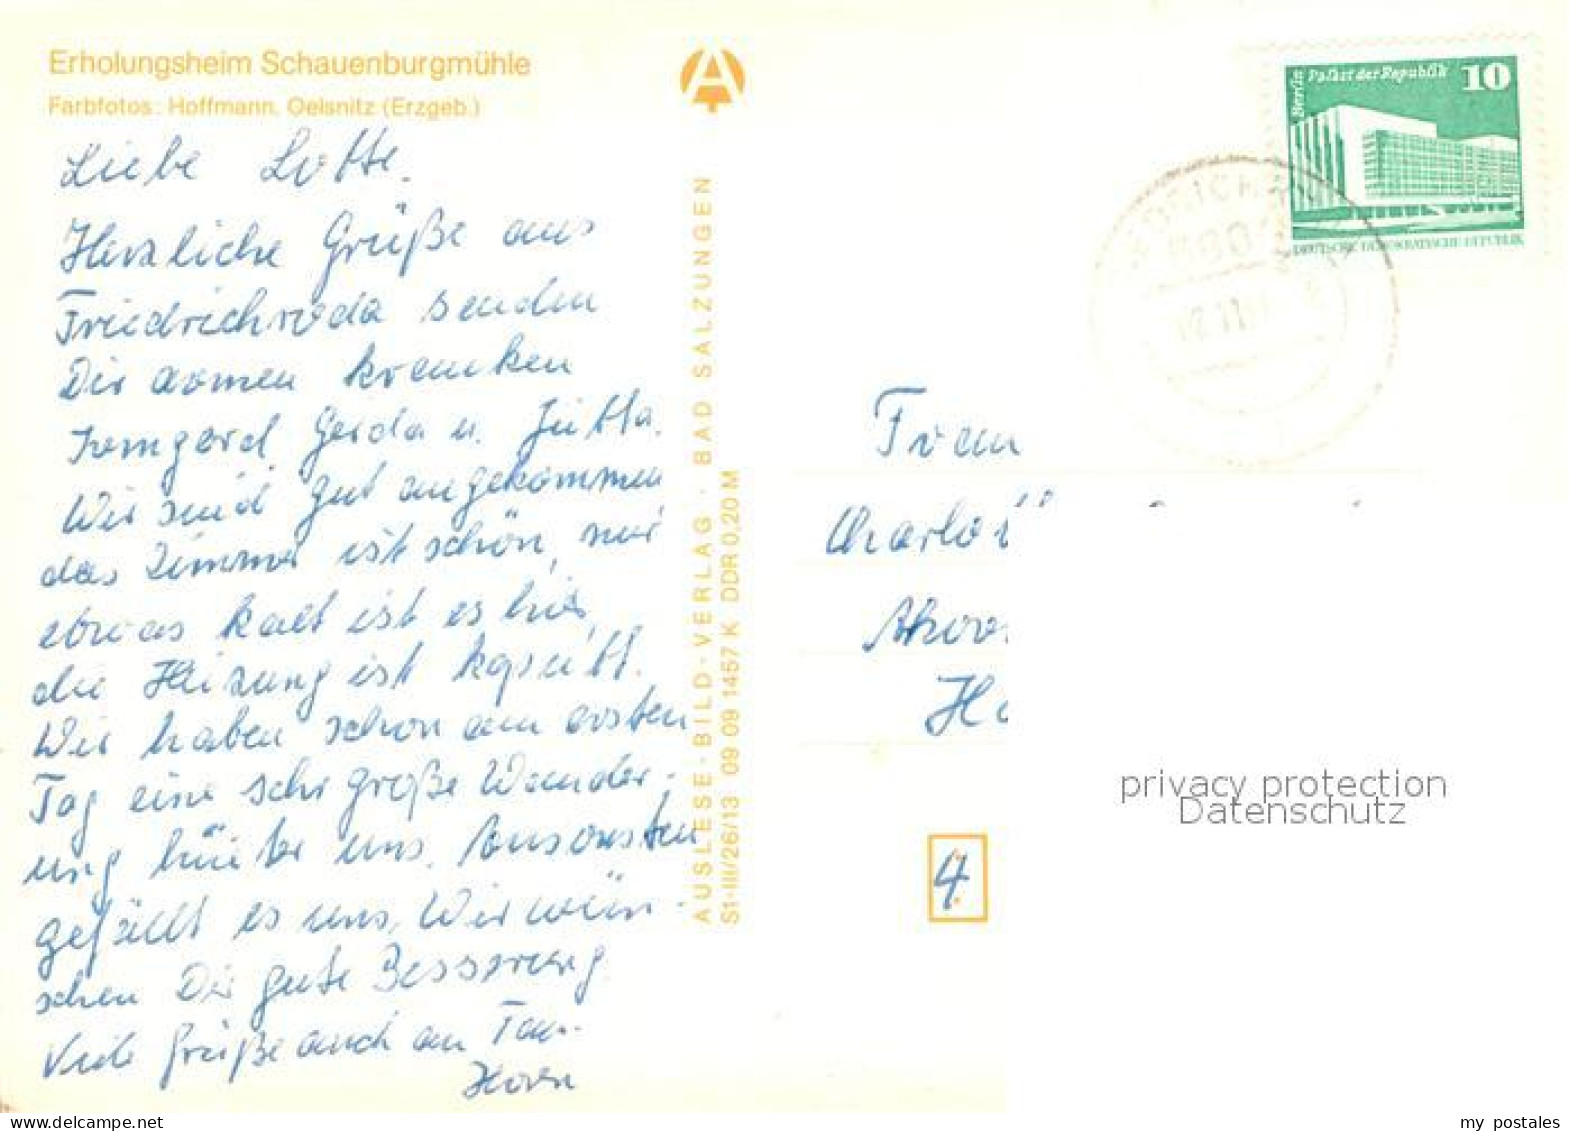 Erholungsheim Schauenburgmühle
Farbfotos: Hoffmann, Oelsnitz (Erzgeb.)
Liebe Lotte.
Herzliche Grüße aus
Friedrichroda senden
Dir armen kranken
Irmgard Gerda u. Jutta.
Wir sind gut angekommen
das Zimmer ist schön, nur
etwas kalt ist es hier,
die Heizung ist kaputt.
Wir haben schon am ersten
Tag eine sehr große Wander-
ung hinter uns. Ansonsten
gefällt es uns. Wir wün-
schen Dir gute Besserung
Viele Grüße auch an
AUSLESE-BILD-VERLAG · BAD SALZUNGEN
S1-III/26/13 09 09 1457 K DDR 0,20 M
Berlin Palast der Republik 10
DEUTSCHE DEMOKRATISCHE REPUBLIK
Frau
4
privacy protection
Datenschutz
www.delcampe.net
my postales